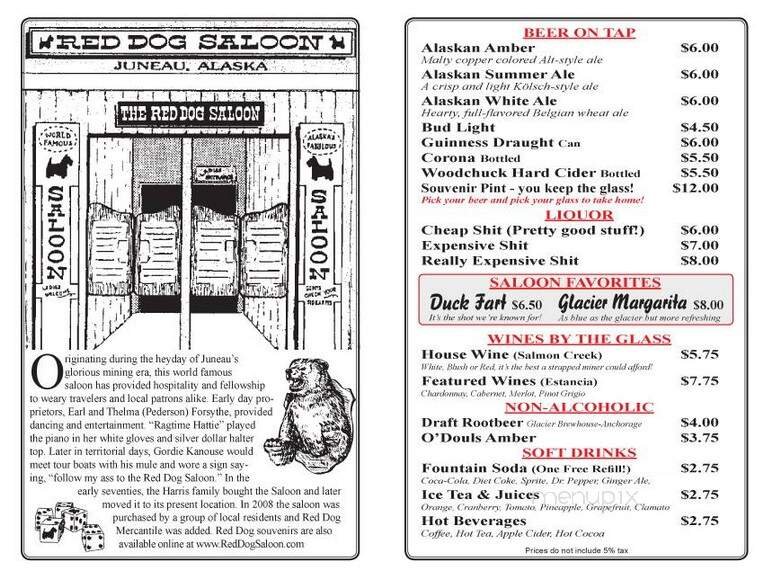 RED DOG SALOON
JUNEAU, ALASKA
THE RED DOG SALOON
WORLD
FAMOUS
SALOON
LADIES
WELCOME
LADIES
ENTRANCE
ALASKA'S
FABULOUS
SALOON
GENTS
CHECK YOUR
FIREARMS
Originating during the heyday of Juneau's
glorious mining era, this world famous
saloon has provided hospitality and fellowship
to weary travelers and local patrons alike. Early day pro-
prietors, Earl and Thelma (Pederson) Forsythe, provided
dancing and entertainment. “Ragtime Hattie” played
the piano in her white gloves and silver dollar halter
top. Later in territorial days, Gordie Kanouse would
meet tour boats with his mule and wore a sign say-
ing, “follow my ass to the Red Dog Saloon.” In the
early seventies, the Harris family bought the Saloon and later
moved it to its present location. In 2008 the saloon was
purchased by a group of local residents and Red Dog
Mercantile was added. Red Dog souvenirs are also
available online at www.RedDogSaloon.com
BEER ON TAP
Alaskan Amber $6.00
Malty copper colored Alt-style ale
Alaskan Summer Ale $6.00
A crisp and light Kölsch-style ale
Alaskan White Ale $6.00
Hearty, full-flavored Belgian wheat ale
Bud Light $4.50
Guinness Draught Can $6.00
Corona Bottled $5.50
Woodchuck Hard Cider Bottled $5.50
Souvenir Pint - you keep the glass! $12.00
Pick your beer and pick your glass to take home!
LIQUOR
Cheap Shit (Pretty good stuff!) $6.00
Expensive Shit $7.00
Really Expensive Shit $8.00
SALOON FAVORITES
Duck Fart $6.50 Glacier Margarita $8.00
It's the shot we're known for! As blue as the glacier but more refreshing
WINES BY THE GLASS
House Wine (Salmon Creek) $5.75
White, Blush or Red, it's the best a strapped miner could afford!
Featured Wines (Estancia) $7.75
Chardonnay, Cabernet, Merlot, Pinot Grigio
NON-ALCOHOLIC
Draft Rootbeer Glacier Brewhouse-Anchorage $4.00
O'Douls Amber $3.75
SOFT DRINKS
Fountain Soda (One Free Refill!) $2.75
Coca-Cola, Diet Coke, Sprite, Dr. Pepper, Ginger Ale,
Ice Tea & Juices $2.75
menupix
Orange, Cranberry, Tomato, Pineapple, Grapefruit, Clamato
Hot Beverages $2.75
Coffee, Hot Tea, Apple Cider, Hot Cocoa
Prices do not include 5% tax